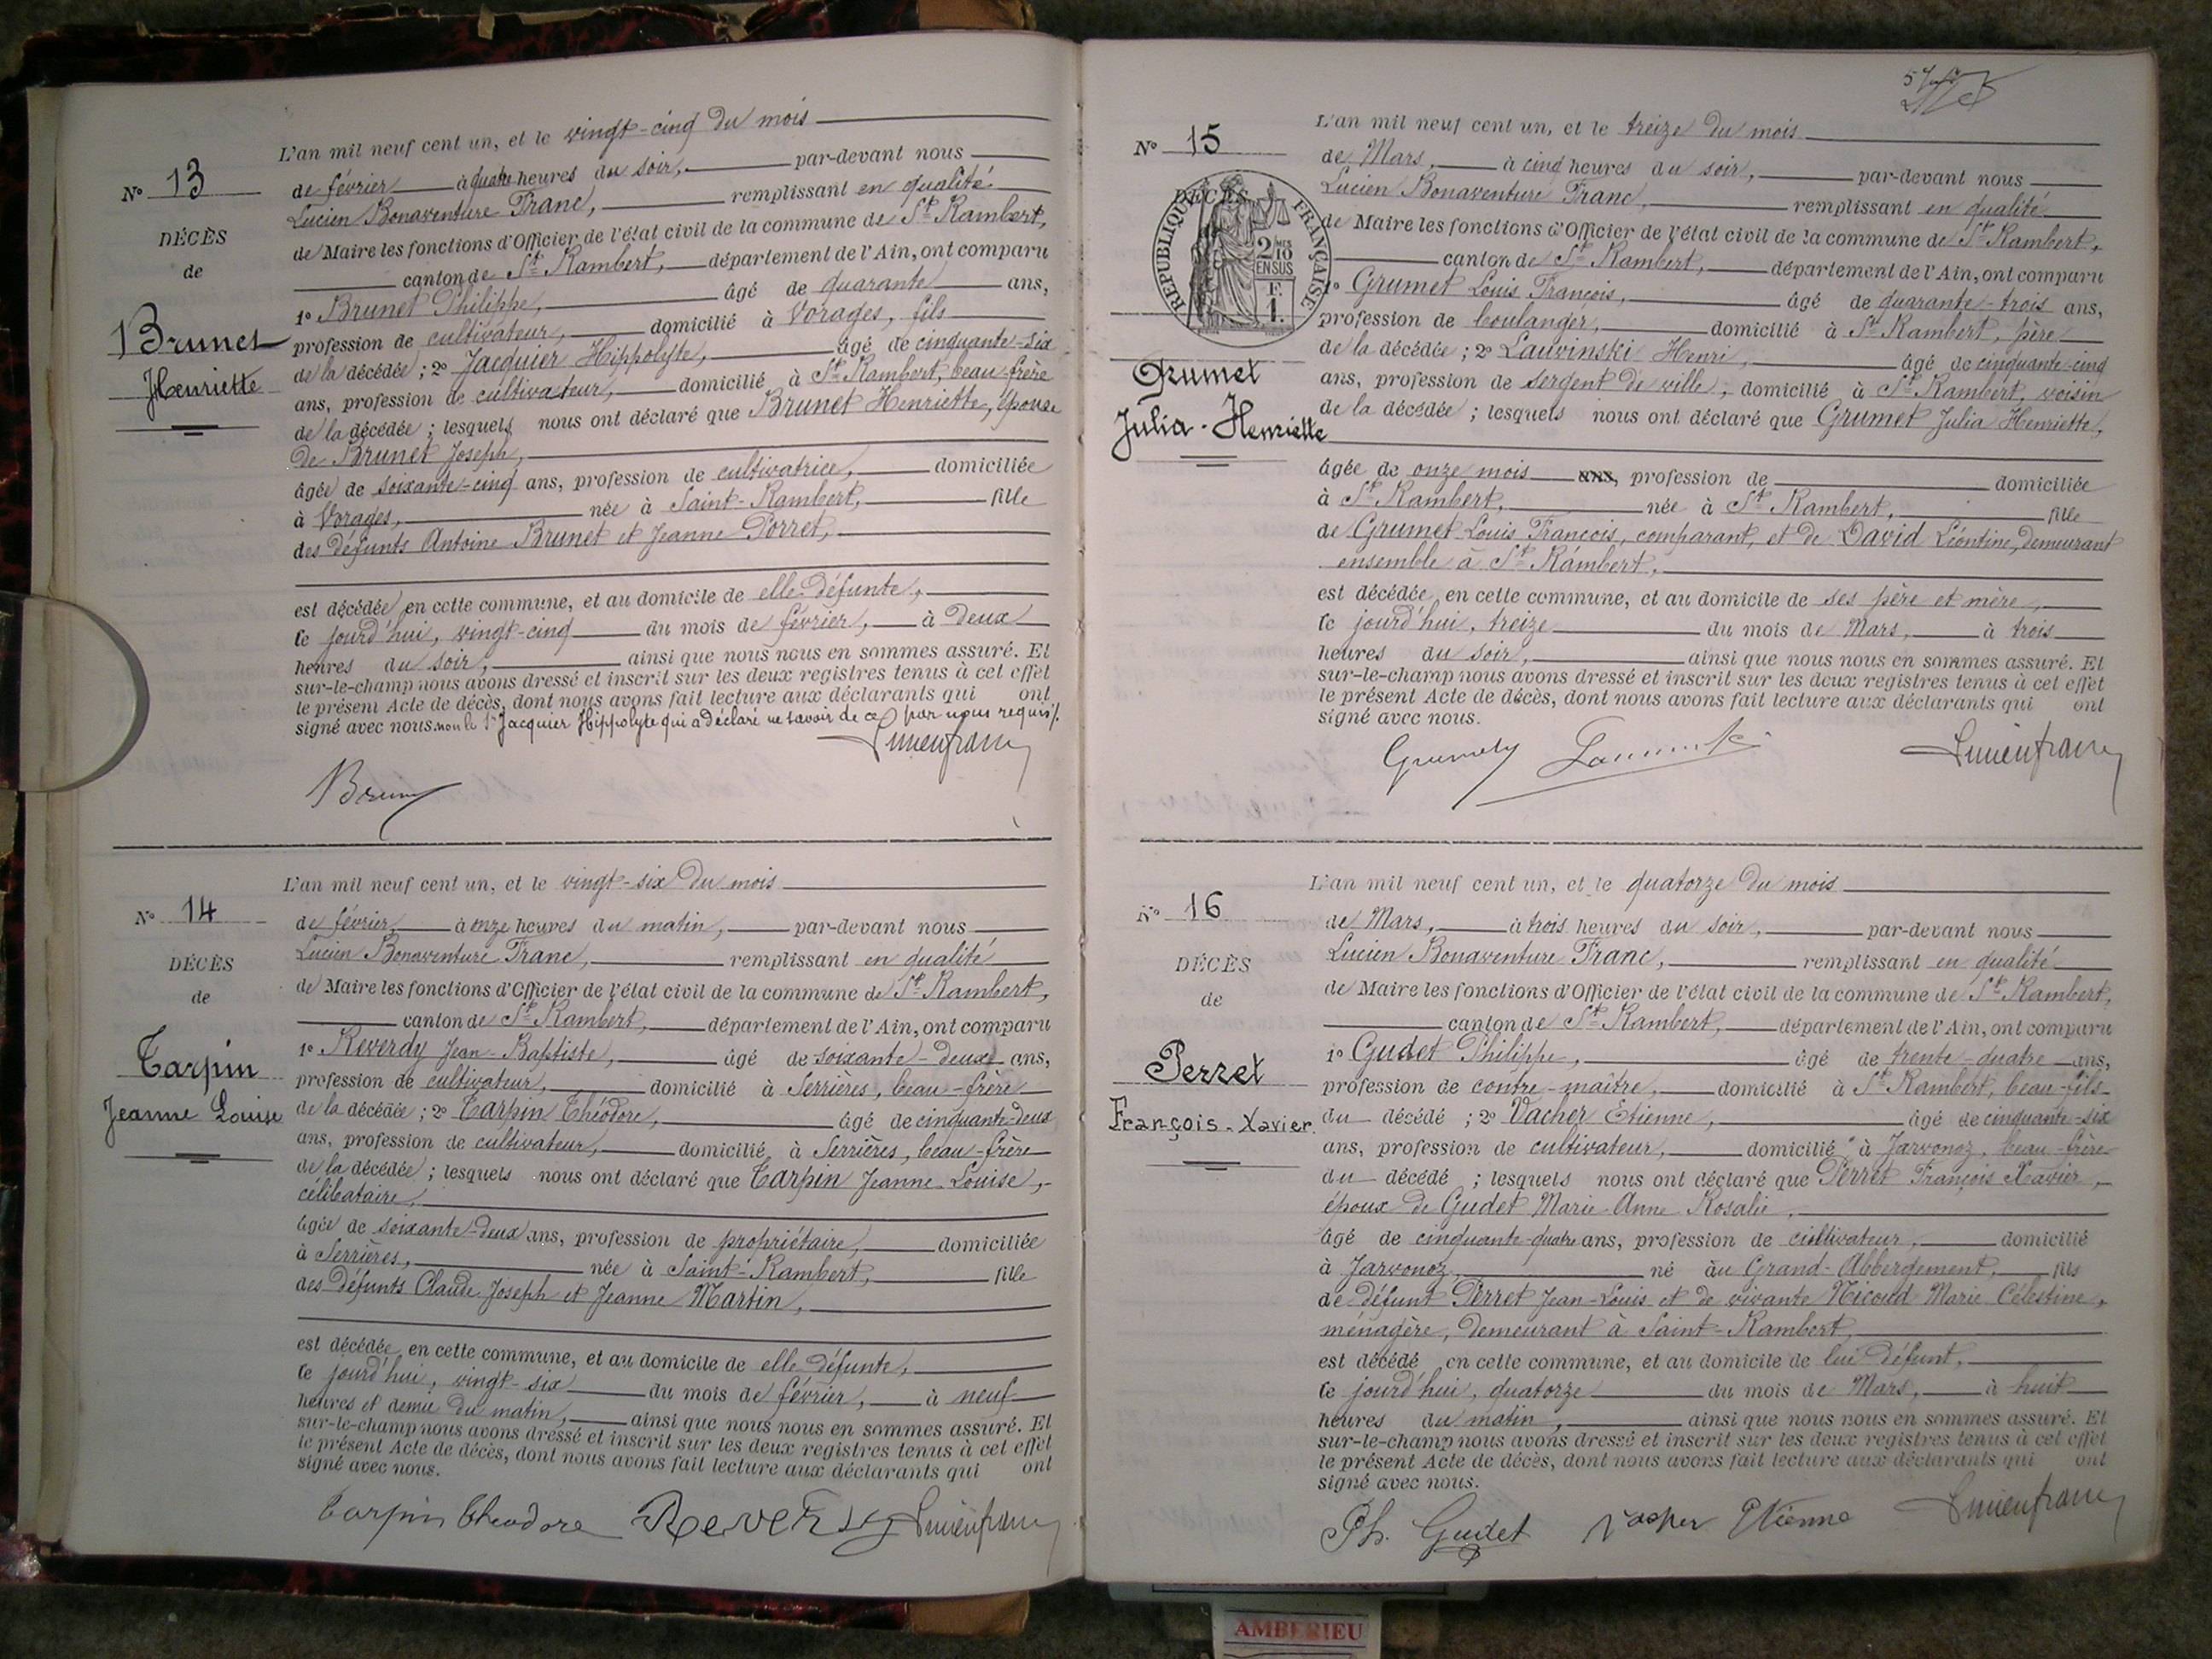 N° 13
DÉCÈS
de
Brunet
Henriette
L'an mil neuf cent un, et le vingt-cinq du mois
de février à quatre heures du soir, par-devant nous
Lucien Bonaventure Franc, remplissant en qualité
de Maire les fonctions d'Officier de l'état civil de la commune de St Rambert,
canton de St Rambert, département de l'Ain, ont comparu
1° Brunet Philippe, âgé de quarante ans,
profession de cultivateur, domicilié à Vorages, fils
de la décédée ; 2° Jacquier Hippolyte, âgé de cinquante-six
ans, profession de cultivateur, domicilié à St Rambert, beau-frère
de la décédée ; lesquels nous ont déclaré que Brunet Henriette, épouse
de Brunet Joseph,
âgée de soixante-cinq ans, profession de cultivatrice, domiciliée
à Vorages, née à Saint-Rambert, fille
des défunts Antoine Brunet et Jeanne Porret,
est décédée en cette commune, et au domicile de elle défunte,
ce jourd'hui, vingt-cinq du mois de février, à deux
heures du soir, ainsi que nous nous en sommes assuré. Et
sur-le-champ nous avons dressé et inscrit sur les deux registres tenus à cet effet
le présent Acte de décès, dont nous avons fait lecture aux déclarants qui ont
signé avec nous. non le Sr Jacquier Hippolyte qui a déclaré ne savoir de ce par nous requis.
Lucien franc
Brun
N° 14
DÉCÈS
de
Tarpin
Jeanne Louise
L'an mil neuf cent un, et le vingt-six du mois
de février à onze heures du matin, par-devant nous
Lucien Bonaventure Franc, remplissant en qualité
de Maire les fonctions d'Officier de l'état civil de la commune de St Rambert,
canton de St Rambert, département de l'Ain, ont comparu
1° Reverdy Jean-Baptiste, âgé de soixante-deux ans,
profession de cultivateur, domicilié à Serrières, beau-frère
de la décédée ; 2° Tarpin Théodore, âgé de cinquante-deux
ans, profession de cultivateur, domicilié à Serrières, beau-frère
de la décédée ; lesquels nous ont déclaré que Tarpin Jeanne-Louise,
célibataire,
âgée de soixante-deux ans, profession de propriétaire, domiciliée
à Serrières, née à Saint-Rambert, fille
des défunts Claude Joseph et Jeanne Martin,
est décédée en cette commune, et au domicile de elle défunte,
ce jourd'hui, vingt-six du mois de février, à neuf
heures et demie du matin, ainsi que nous nous en sommes assuré. Et
sur-le-champ nous avons dressé et inscrit sur les deux registres tenus à cet effet
le présent Acte de décès, dont nous avons fait lecture aux déclarants qui ont
signé avec nous.
Tarpin Theodore Reverdy Lucien franc
N° 15
DÉCÈS
RÉPUBLIQUE FRANÇAISE
2/10 MES
EN SUS
F.
1.
Grumet
Julia-Henriette
L'an mil neuf cent un, et le treize du mois
de Mars, à cinq heures du soir, par-devant nous
Lucien Bonaventure Franc, remplissant en qualité
de Maire les fonctions d'Officier de l'état civil de la commune de St Rambert,
canton de St Rambert, département de l'Ain, ont comparu
1° Grumet Louis François, âgé de quarante-trois ans,
profession de boulanger, domicilié à St Rambert, père
de la décédée ; 2° Lauvinski Henri, âgé de cinquante-cinq
ans, profession de sergent de ville, domicilié à St Rambert, voisin
de la décédée ; lesquels nous ont déclaré que Grumet Julia Henriette,
âgée de onze mois ans, profession de domiciliée
à St Rambert, née à St Rambert, fille
de Grumet Louis François, comparant, et de David Léontine, demeurant
ensemble à St Rambert,
est décédée en cette commune, et au domicile de ses père et mère,
ce jourd'hui, treize du mois de Mars, à trois
heures du soir, ainsi que nous nous en sommes assuré. Et
sur-le-champ nous avons dressé et inscrit sur les deux registres tenus à cet effet
le présent Acte de décès, dont nous avons fait lecture aux déclarants qui ont
signé avec nous.
Lucien franc
N° 16
DÉCÈS
de
Perret
François-Xavier
L'an mil neuf cent un, et le quatorze du mois
de Mars, à trois heures du soir, par-devant nous
Lucien Bonaventure Franc, remplissant en qualité
de Maire les fonctions d'Officier de l'état civil de la commune de St Rambert,
canton de St Rambert, département de l'Ain, ont comparu
1° Gudet Philippe, âgé de trente-quatre ans,
profession de contre-maître, domicilié à St Rambert, beau-fils
du décédé ; 2° Vacher Etienne, âgé de cinquante-six
ans, profession de cultivateur, domicilié à Javornoz, beau-frère
du décédé ; lesquels nous ont déclaré que Perret François Xavier,
époux de Gudet Marie-Anne Rosalie,
âgé de cinquante-quatre ans, profession de cultivateur, domicilié
à Jarvonoz, né au Grand-Abbergement, fils
de défunt Perret Jean-Louis et de vivante Nicoud Marie Célestine,
ménagère, demeurant à Saint-Rambert,
est décédé en cette commune, et au domicile de lui défunt,
ce jourd'hui, quatorze du mois de Mars, à huit
heures du matin, ainsi que nous nous en sommes assuré. Et
sur-le-champ nous avons dressé et inscrit sur les deux registres tenus à cet effet
le présent Acte de décès, dont nous avons fait lecture aux déclarants qui ont
signé avec nous.
Ph. Gudet Etienne Lucien franc
AMBERIEU